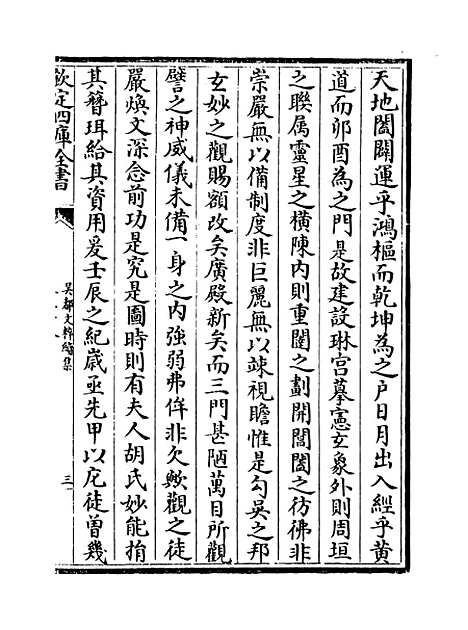 天地闔闢運乎鴻樞而乾坤為之户日月出入經乎黄
道而卯酉為之門是故建設琳宫摹憲玄象外則周垣
之聯属靈星之横陳内則重闥之劃開閶闔之彷彿非
崇嚴無以備制度非巨麗無以竦視瞻惟是勾吴之邦
玄妙之觀賜額改矣廣殿新矣而三門甚陋萬目所觀
譬之神威儀未備一身之内強弱弗侔非欠歟觀之徒
嚴焕文深念前功是究是圖時則有夫人胡氏妙能捐
其簪珥給其資用爰壬辰之紀歳亟先甲以庀徒曽幾
欽定四庫全書
吴都文粹續集
三